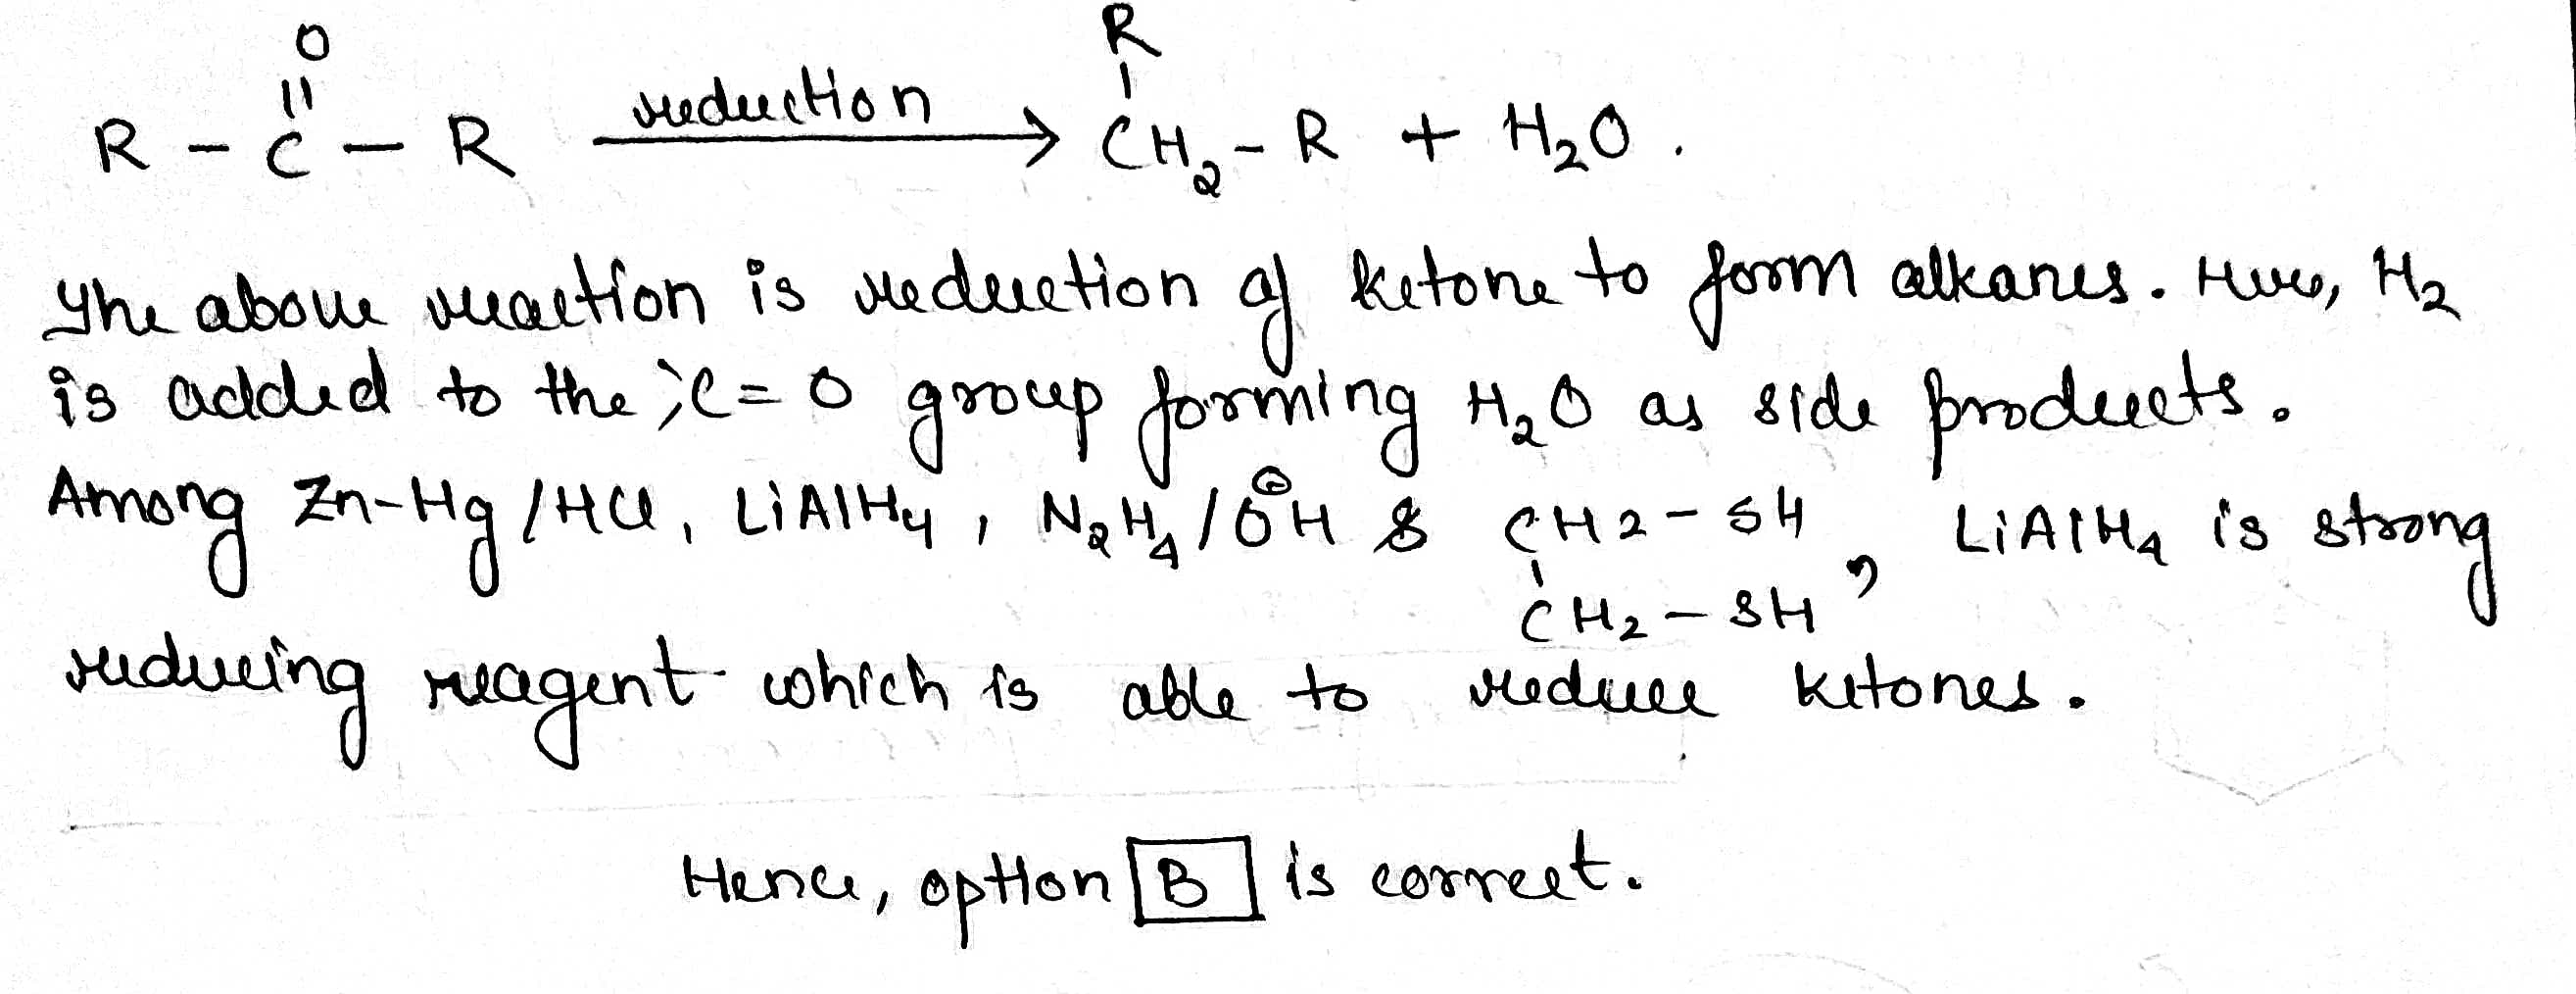 O
||
R - C - R reduction → CH₂ - R + H₂O .
R
|
The above reaction is reduction of ketone to form alkanes. Here, H₂
is added to the >C=O group forming H₂O as side products.
Among Zn-Hg/HCl, LiAlH₄, N₂H₄/OH⊖ & CH2-SH, LiAlH₄ is strong
|
CH₂-SH
reducing reagent which is able to reduce ketones.
Hence, option B is correct.